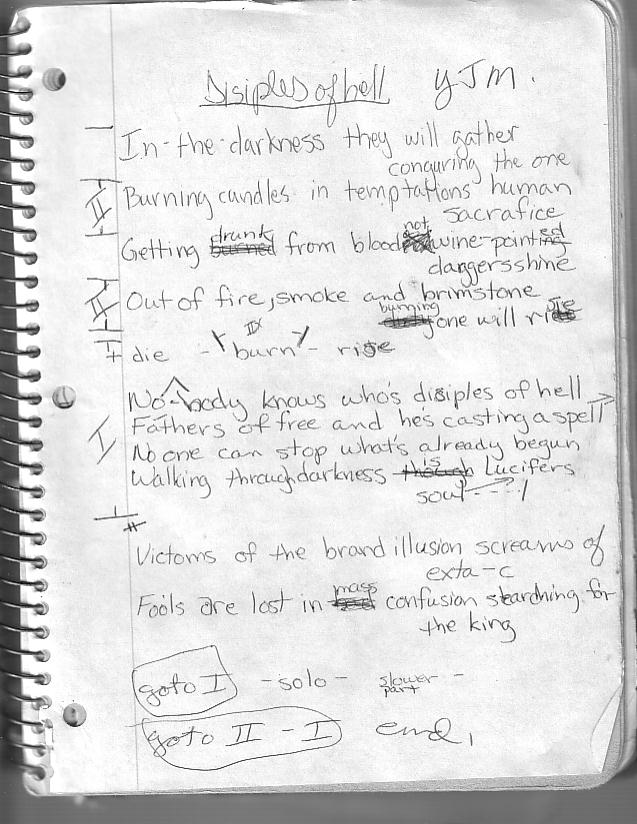 Disiples of hell YJM.
I
In-the-darkness they will gather
conquring the one
II
Burning candles in temptations human
sacrafice
Getting drunk from blood not wine-pointed
daggersshine
II
Out of fire, smoke and brimstone
burning one will rise
II
die - burn - rise
No-body knows who's disiples of hell
I
Fathers of free and he's casting a spell
No one can stop what's already begun
Walking through darkness is Lucifers
soul
Victoms of the brand illusion screams of
exta-c
Fools are lost in mass confusion searching for
the king
goto I -solo- slower part -
goto II - I end,